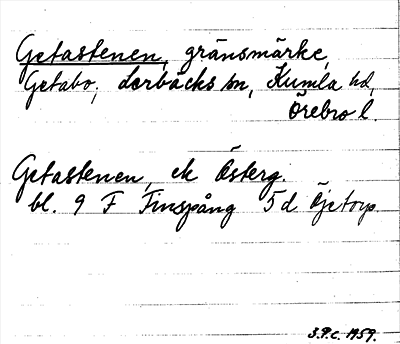 Getastenen, gränsmärke,
Getabo, Lerbäcks sn, Kumla hd,
Örebro l.
Getastenen, ek Österg.
bl. 9 F Finspång 5d Öjetorp.
S.P.C. 1959.